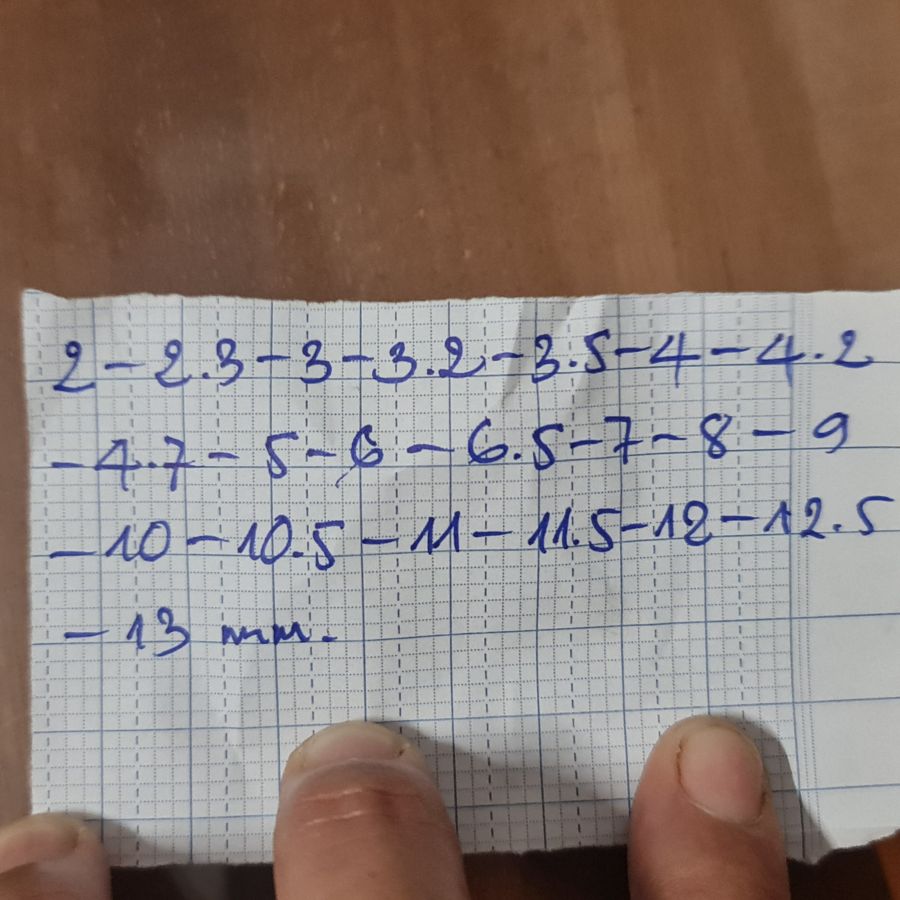 2 - 2.3 - 3 - 3.2 - 3.5 - 4 - 4.2
- 4.7 - 5 - 6 - 6.5 - 7 - 8 - 9
- 10 - 10.5 - 11 - 11.5 - 12 - 12.5
- 13 mm.